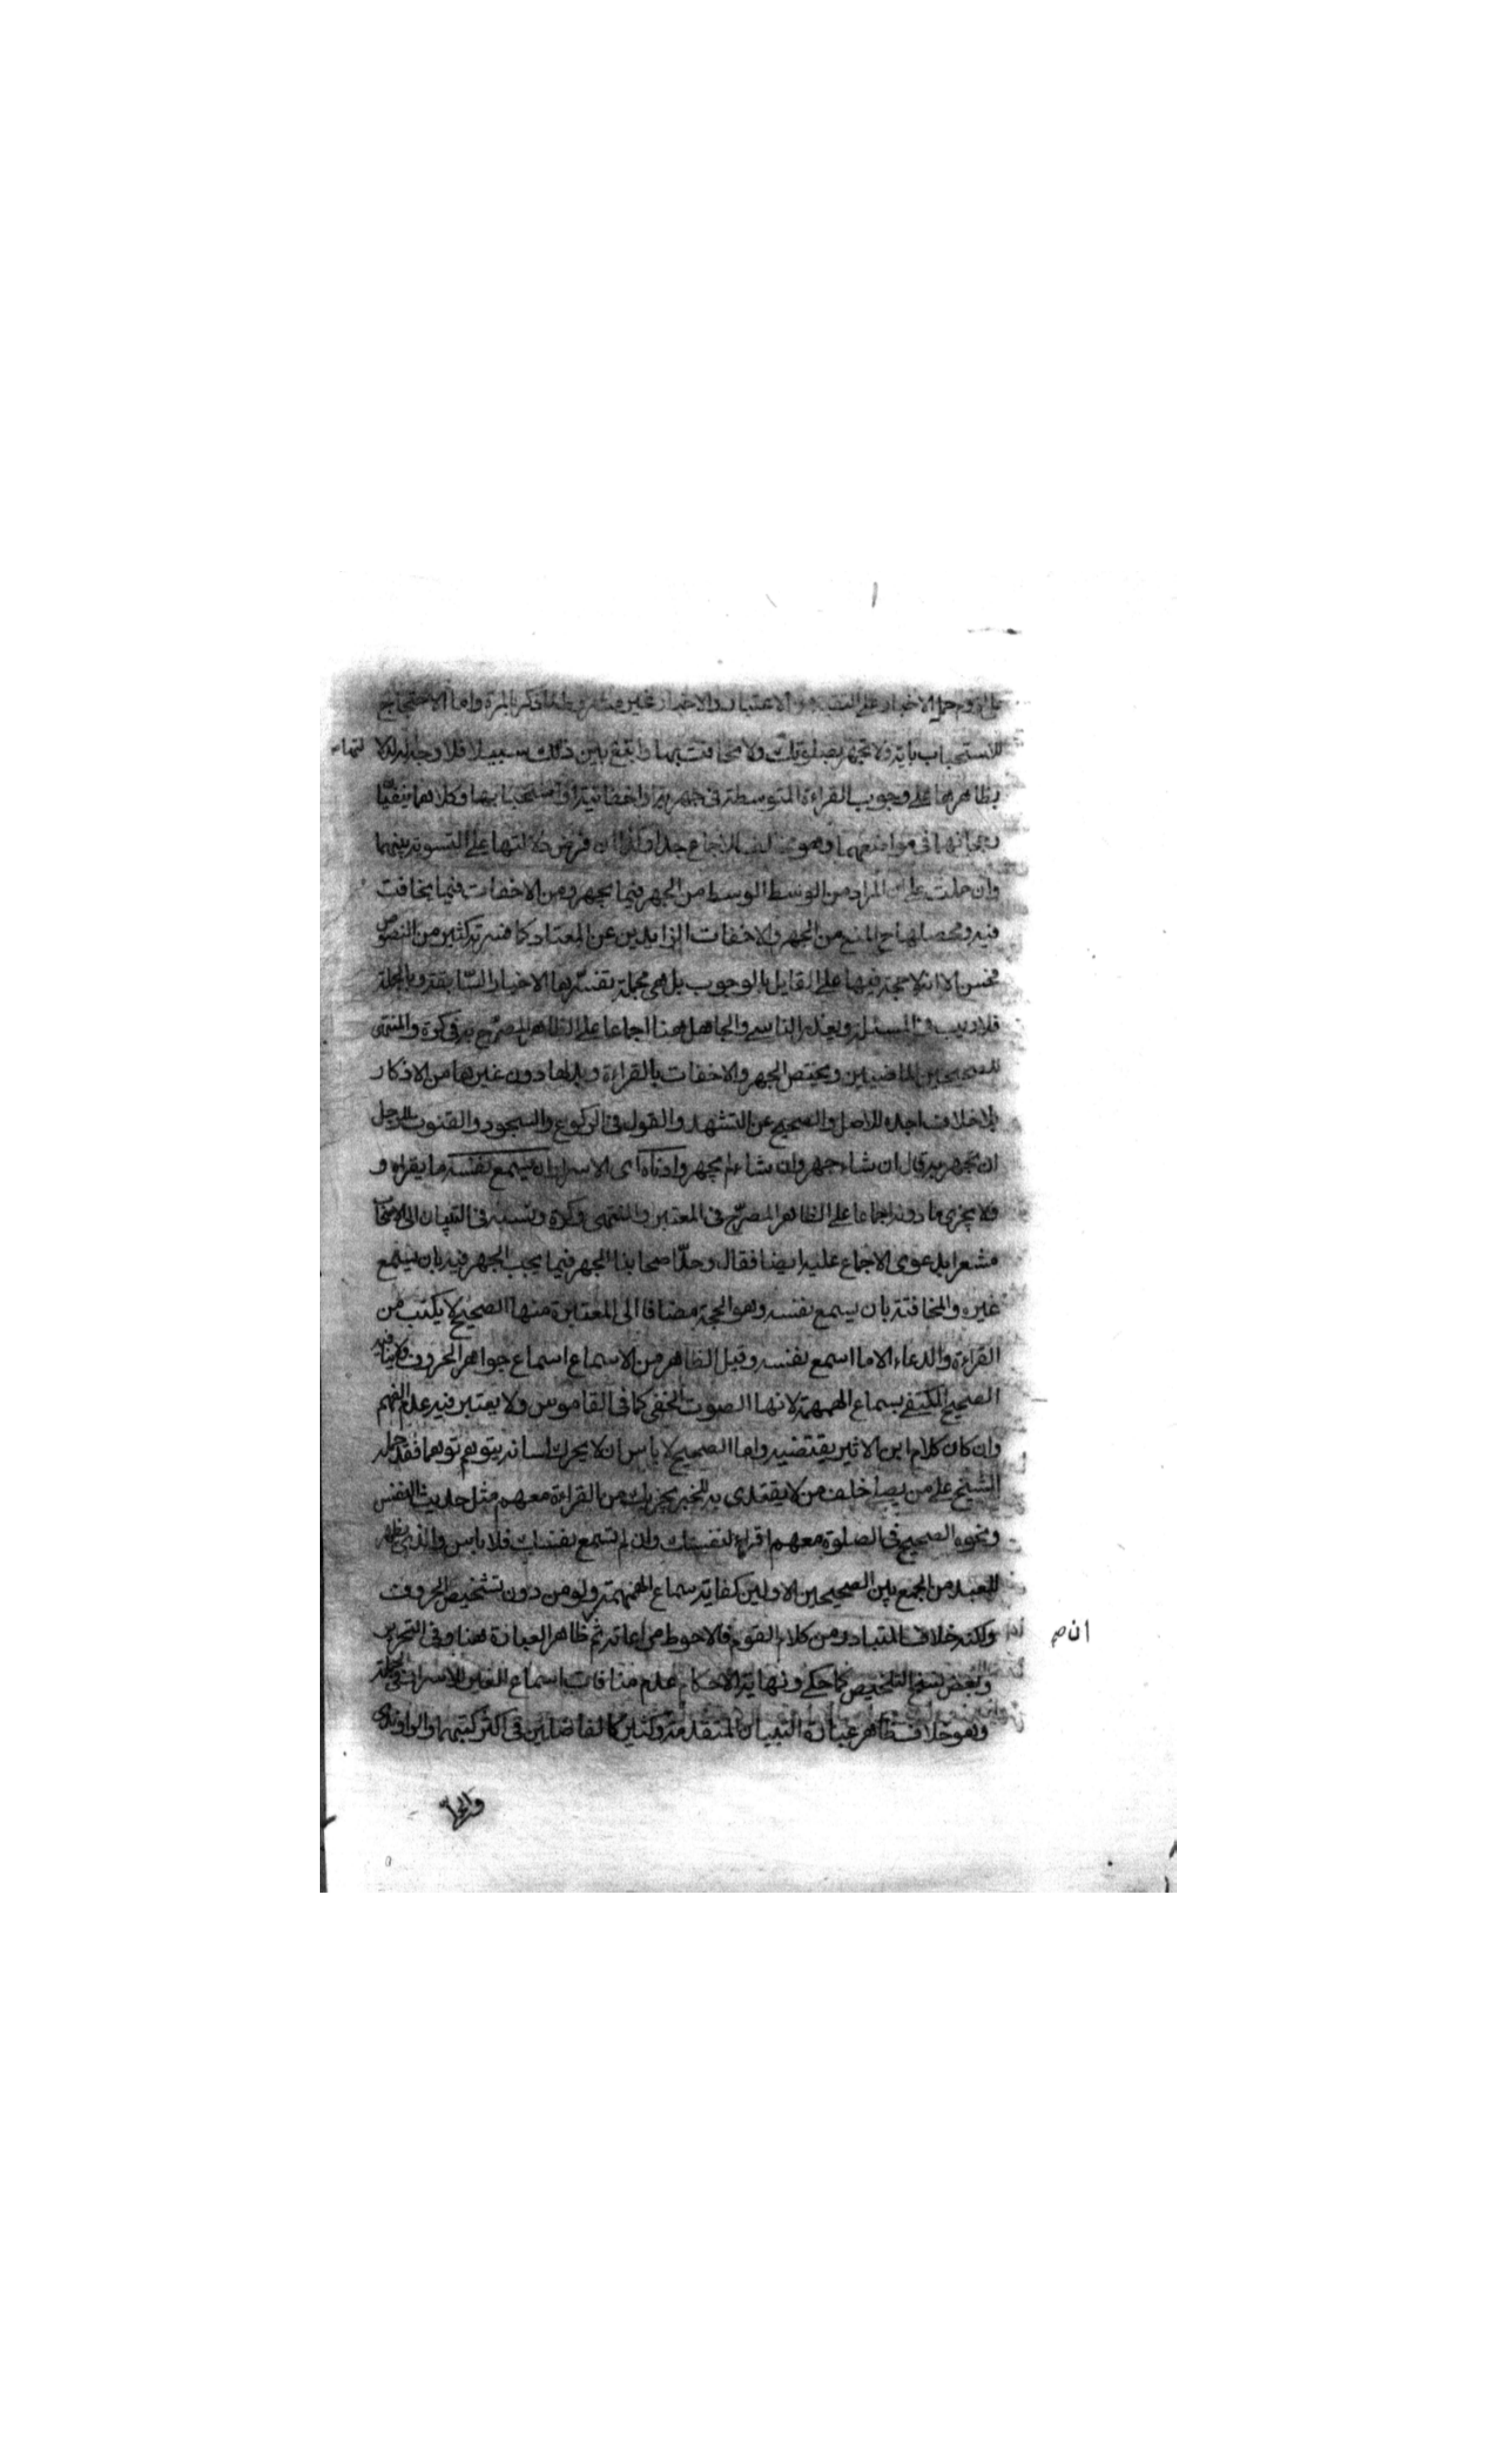 على لزوم حمل الاخبار على التقية هو الاعتبار والاخبار غير مشروطة بما ذكر بالمرة واما الاحتجاج
للاستحباب باية ولا تجهر بصلوتك ولا تخافت بها وابتغ بين ذلك سبيلا فلا وجه له لدلا لتهاء
بظاهرها على وجوب القراءة المتوسطة في جهرية او اخفاتية او استحبابها وكلاهما
في مواضعهما وهو مخالف للاجماع جدا ولذا ان فرض دلالتها على التسوية بينهما
وان حملت على ان المراد من الوسط الوسط من الجهر فيما يجهر ومن الاخفات فيما يخافت
فيه ومحصلها ح المنع من الجهر والاخفات الزايدين عن المعتاد كما فسرته كثير من النصوص
فحسن الا انه لا حجة فيها على القايل بالوجوب بل هي مجملة تفسرها الاخبار السابقة وبالجملة
فلا ريب في المسئلة ويعذر الناسي والجاهل هنا اجماعا على الظاهر المصرح به في كرة والمنتهى
للصحيحين الماضيين ويختص الجهر والاخفات بالقراءة وبدلها دون غيرها من الاذكار
بلا خلاف اجده للاصل والصحيح عن التشهد والقول في الركوع والسجود والقنوت للرجل
ان يجهر به قال ان شاء جهر وان شاء لم يجهر وادناه اى الاسرار ان يسمع نفسه ما يقراه و
فلا يجزى ما دونه اجماعا على الظاهر المصرح في المعتبر والمنتهى وكرة ونسبه في التبيان الى الاصحاب
مشعرا بدعوى الاجماع عليه ايضا فقال وحد اصحابنا الجهر فيما يجب الجهر فيه بان يسمع
غيره والمخافتة بان يسمع نفسه وهو الحجة مضافا الى المعتبرة منها الصحيح لا يكتب من
القراءة والدعاء الا ما اسمع نفسه وقيل الظاهر من الاسماع اسماع جواهر الحروف ولا ينافيه
الصحيح المكتفي بسماع الهمهمة لانها الصوت الخفي كما في القاموس ولا يعتبر فيه عدم الفهم
وان كان كلام ابن الاثير يقتضيه واما الصحيح لا باس ان لا يحرك لسانه يتوهم توهما فقد حمله
الشيخ على من يصلى خلف من لا يقتدى به للخبر يجزيك من القراءة معهم مثل حديث النفس
ونحوه الصحيح في الصلوة معهم اقراء لنفسك وان لم تسمع نفسك فلا باس والذي يظهر
للعبد من الجمع بين الصحيحين الاولين كفاية سماع الهمهمة ولو من دون تشخيص الحروف
ولكنه خلاف المتبادر من كلام القوم فالاحوط مراعاته ثم ظاهر العبارة هنا وفي التحرير ان صح
وبعض نسخ التلخيص كما حكى ونهاية الاحكام عدم منافات اسماع الغير للاسرار في الجملة
وهو خلاف ظاهر عبارة التبيان المتقدمة وكثير كالفاضلين في اكثر كتبهما والراوندى
والحلي